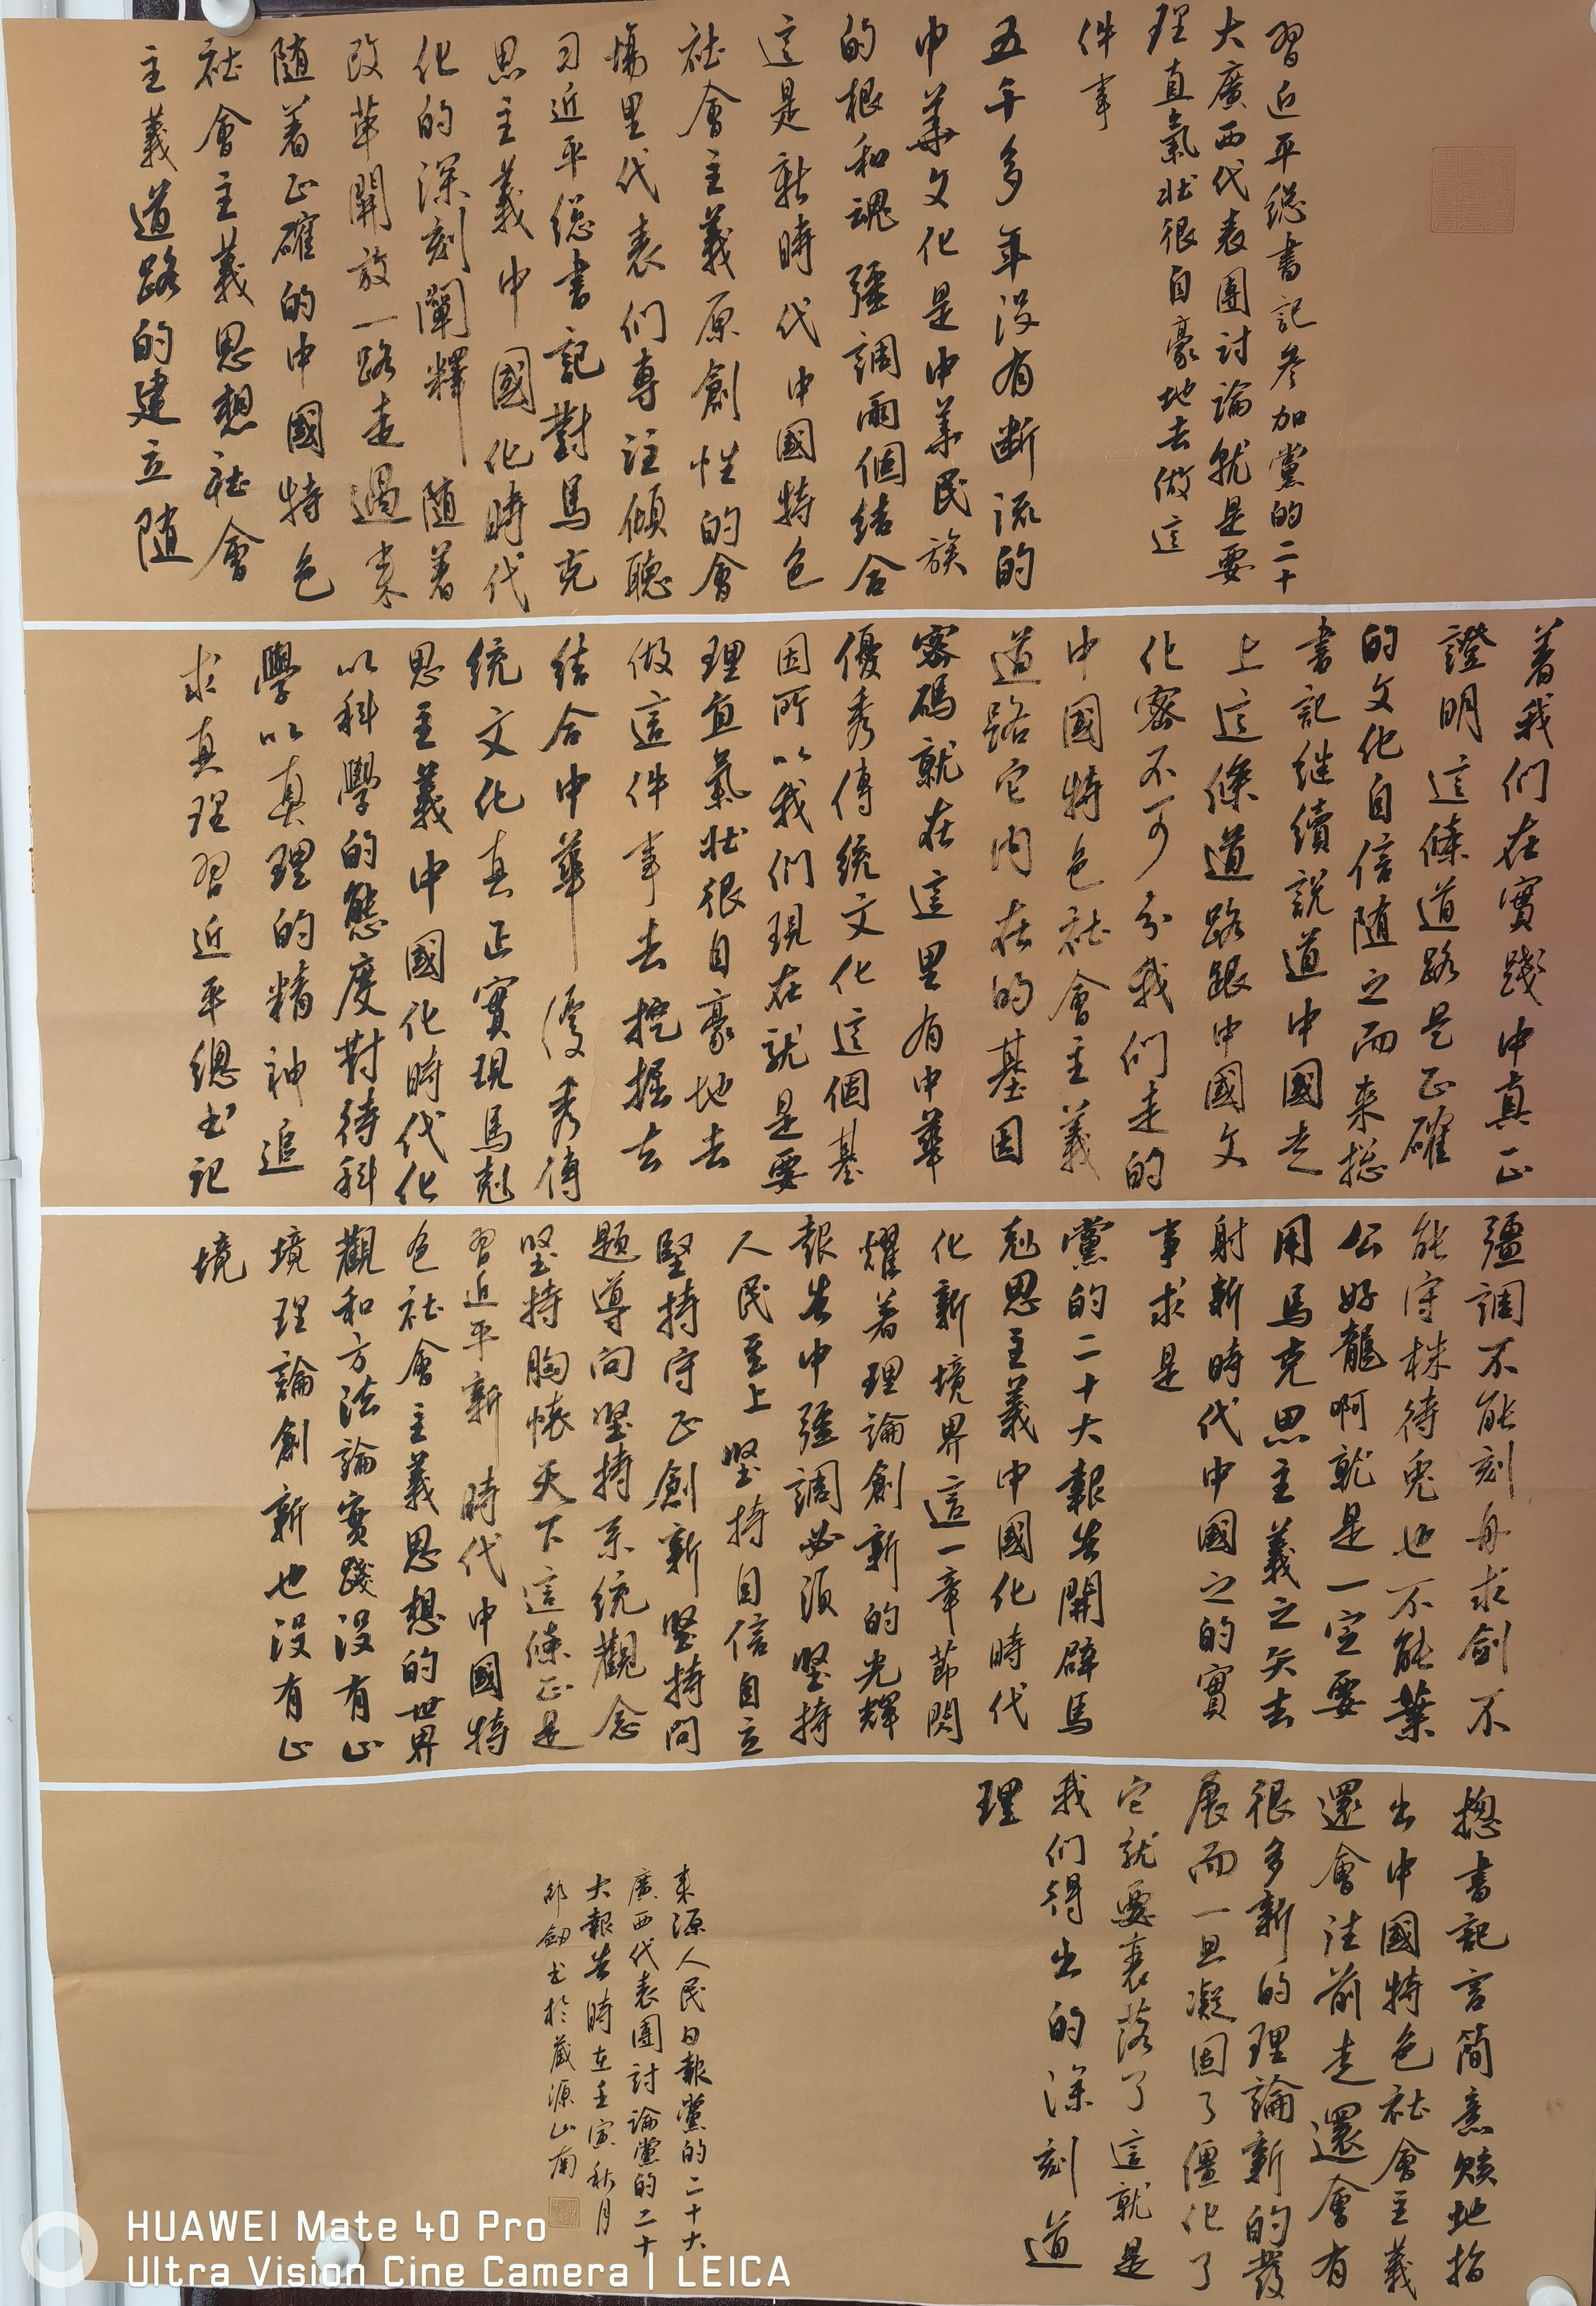 習近平總書記參加黨的二十
大廣西代表團討論就是要
理直氣壯很自豪地去做這
件事
五千多年沒有断流的
中華文化是中華民族
的根和魂强調兩個結合
這是新時代中國特色
社會主義原創性的會
場里代表们專注傾聽
习近平總書記對馬克
思主義中國化時代
化的深刻闡釋随着
改革開放一路走過来
随着正確的中國特色
社會主義思想社會
主義道路的建立随
着我们在實踐中真正
證明這條道路是正確
的文化自信随之而来總
書記继續説道中國走
上這條道路跟中國文
化密不可分我们走的
中國特色社會主義
道路它内在的基因
密碼就在這里有中華
優秀傳統文化這個基
因所以我们現在就是要
理直氣壯很自豪地去
做這件事去挖掘去
結合中華優秀傳
統文化真正實現馬剋
思主義中國化時代化
以科學的態度對待科
學以真理的精神追
求真理習近平總书记
彊調不能刻舟求劍不
能守株待兎也不能葉
公好龍啊就是一定要
用馬克思主義之矢去
射新時代中國之的實
事求是
黨的二十大報告開辟馬
剋思主義中國化時代
化新境界這一章節閃
耀着理論創新的光輝
報告中强調必須堅持
人民至上堅持自信自立
堅持守正創新堅持問
題導向堅持系統觀念
堅持胸懷天下這條正是
習近平新時代中國特
色社會主義思想的世界
觀和方法論實踐没有止
境理論創新也没有止
境
總書記言簡意賅地指
出中國特色社會主義
還會往前走還會有
很多新的理論新的發
展而一旦凝固了僵化了
它就要衰落了這就是
我们得出的深刻道
理
来源人民日報黨的二十大
廣西代表團討論黨的二十
大報告時在壬寅秋月
邱劍书於藏源山南
HUAWEI Mate 40 Pro
Ultra Vision Cine Camera | LEICA